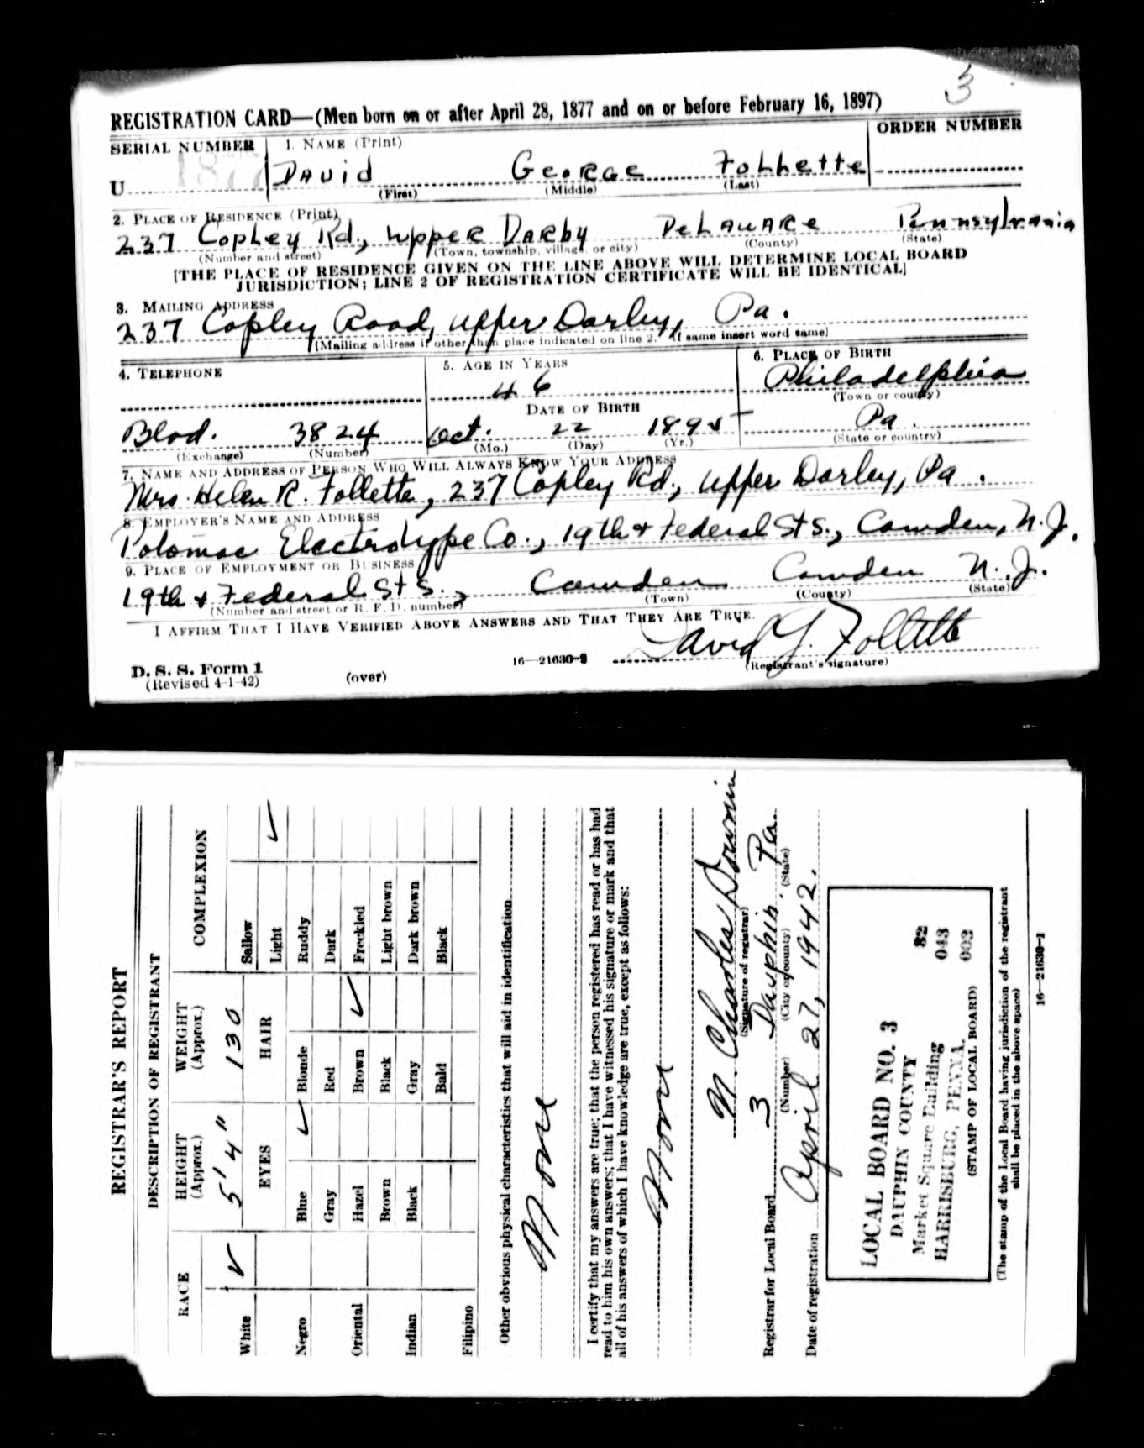 3
REGISTRATION CARD—(Men born on or after April 28, 1877 and on or before February 16, 1897)
SERIAL NUMBER 1. NAME (Print) ORDER NUMBER
U 1877 DAVID GEORGE FOLLETTE
(First) (Middle) (Last)
2. PLACE OF RESIDENCE (Print)
237 Copley Rd, Upper Darby Delaware Pennsylvania
(Number and street) (Town, township, village, or city) (County) (State)
[THE PLACE OF RESIDENCE GIVEN ON THE LINE ABOVE WILL DETERMINE LOCAL BOARD
JURISDICTION; LINE 2 OF REGISTRATION CERTIFICATE WILL BE IDENTICAL]
3. MAILING ADDRESS
237 Copley Road, Upper Darby, Pa.
[Mailing address if other than place indicated on line 2. If same insert word same]
4. TELEPHONE 5. AGE IN YEARS 6. PLACE OF BIRTH
46 Philadelphia
DATE OF BIRTH (Town or county)
Blvd. 3824 Oct. 22 1895 Pa.
(Exchange) (Number) (Mo.) (Day) (Yr.) (State or country)
7. NAME AND ADDRESS OF PERSON WHO WILL ALWAYS KNOW YOUR ADDRESS
Mrs. Helen R. Follette, 237 Copley Rd., Upper Darby, Pa.
8. EMPLOYER'S NAME AND ADDRESS
Potomac Electrotype Co., 19th & Federal Sts., Camden, N.J.
9. PLACE OF EMPLOYMENT OR BUSINESS
19th & Federal Sts., Camden Camden N.J.
(Number and street or R. F. D. number) (Town) (County) (State)
I AFFIRM THAT I HAVE VERIFIED ABOVE ANSWERS AND THAT THEY ARE TRUE.
David G. Follette
D. S. S. Form 1 16—21630-2 (Registrant's signature)
(Revised 4-1-42) (over)
REGISTRAR'S REPORT
DESCRIPTION OF REGISTRANT
RACE HEIGHT (Approx.) WEIGHT (Approx.) COMPLEXION
White ✓ 5' 4" 130 Sallow
EYES HAIR Light ✓
Negro Blue ✓ Blonde Ruddy
Gray Red Dark
Oriental Hazel Brown ✓ Freckled
Brown Black Light brown
Indian Black Gray Dark brown
Bald Black
Filipino
Other obvious physical characteristics that will aid in identification
None
I certify that my answers are true; that the person registered has read or has had
read to him his own answers; that I have witnessed his signature or mark and that
all of his answers of which I have knowledge are true, except as follows:
None
N. Charles
(Signature of registrar)
Registrar for Local Board 3 Dauphin Pa.
(Number) (City or county) (State)
Date of registration April 27, 1942.
LOCAL BOARD NO. 3 82
DAUPHIN COUNTY 043
Market Square Building 003
HARRISBURG, PENNA.
(STAMP OF LOCAL BOARD)
(The stamp of the Local Board having jurisdiction of the registrant
shall be placed in the above space)
16—21630-1